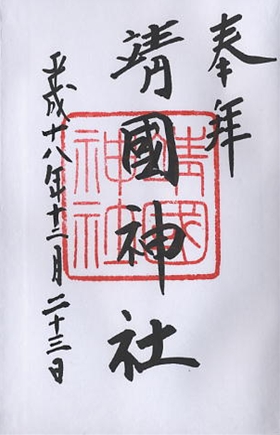 奉拜
靖國神社
平成十八年十二月二十三日
靖國
神社